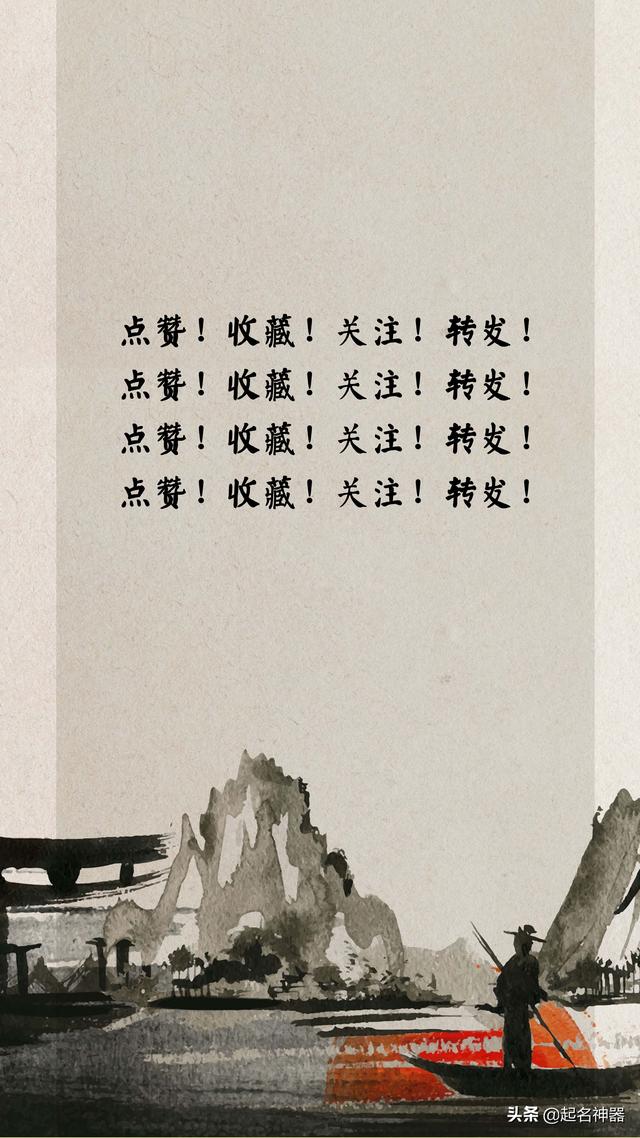 点赞！收藏！关注！转发！
点赞！收藏！关注！转发！
点赞！收藏！关注！转发！
点赞！收藏！关注！转发！
头条 @起名神器